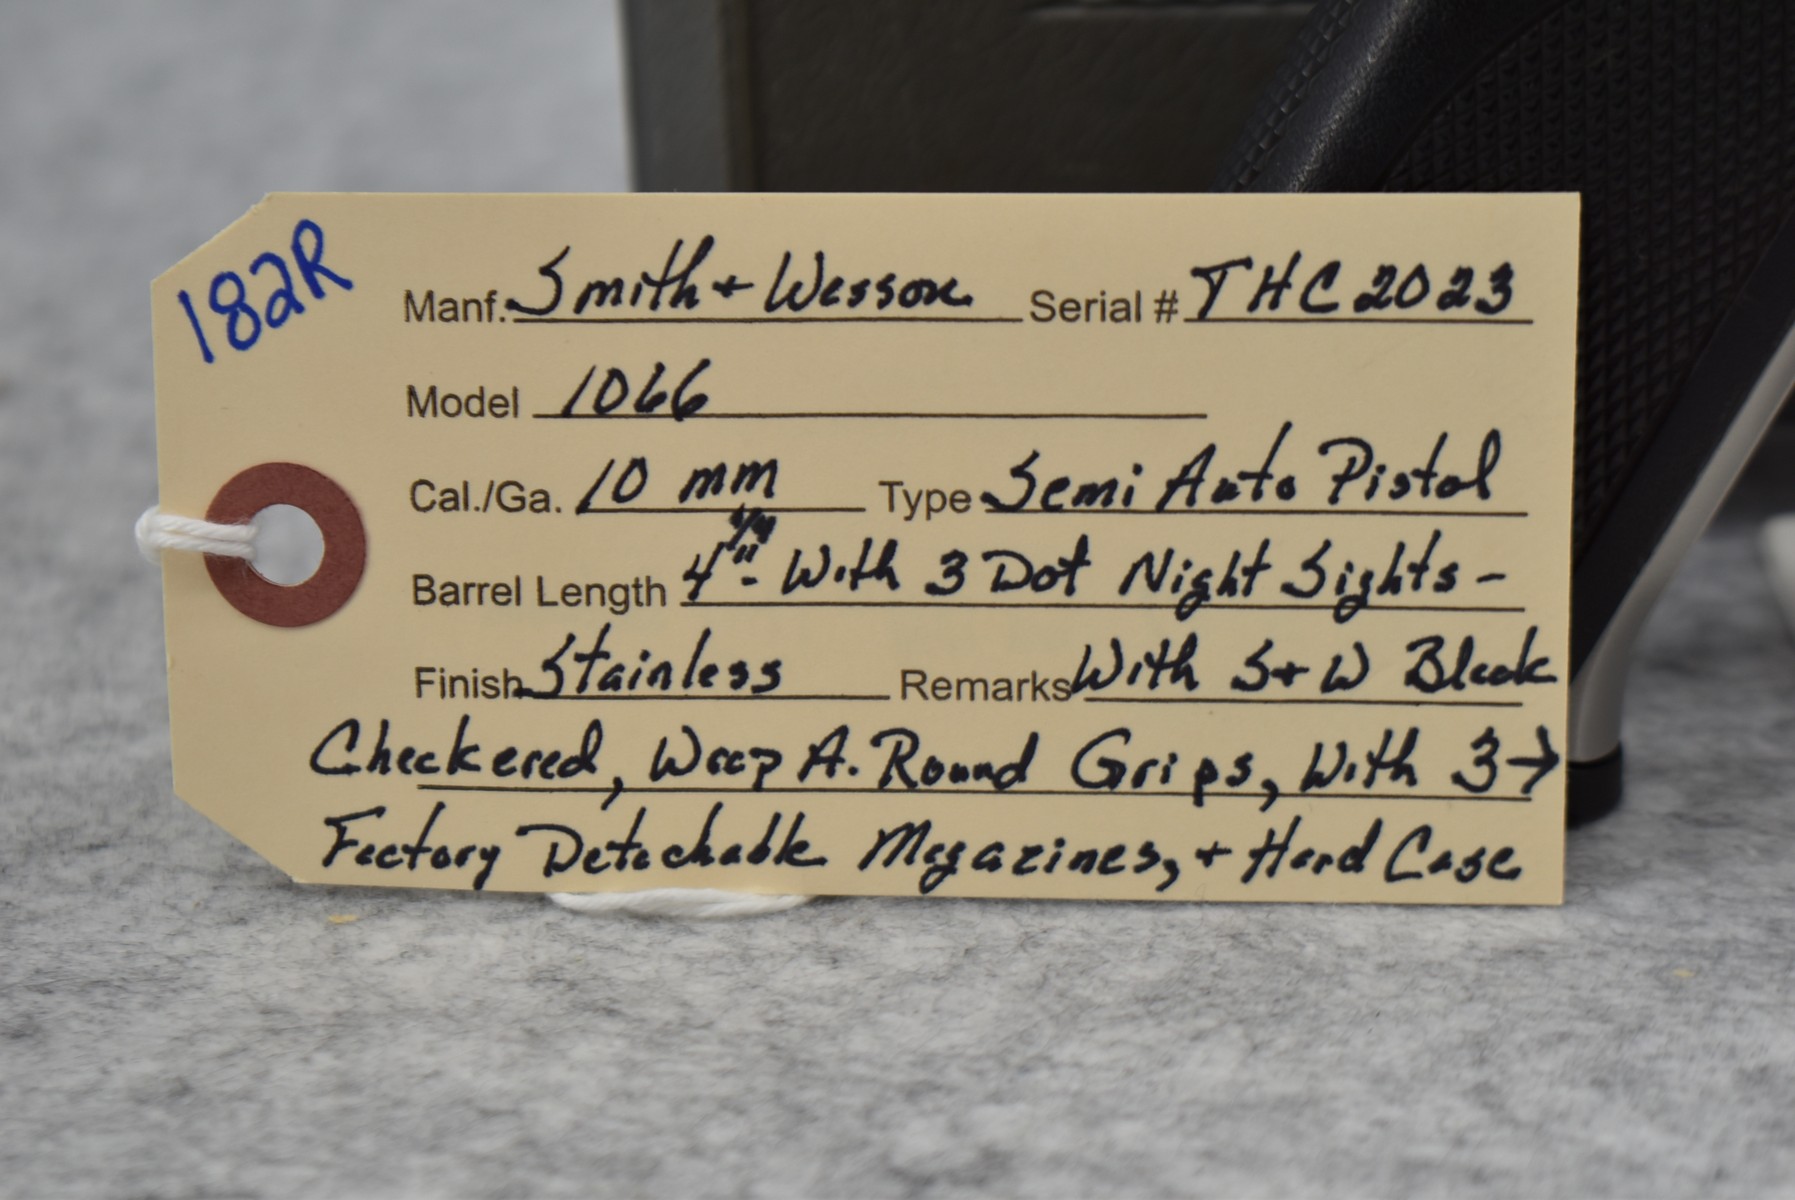 182R
Manf. Smith + Wesson Serial # THC2023
Model 1066
Cal./Ga. 10 mm Type Semi Auto Pistol
Barrel Length 4 1/4" - With 3 Dot Night Sights -
Finish Stainless Remarks With S+W Black
Checkered, Wrap A. Round Grips, With 3 →
Factory Detachable Magazines, + Hard Case